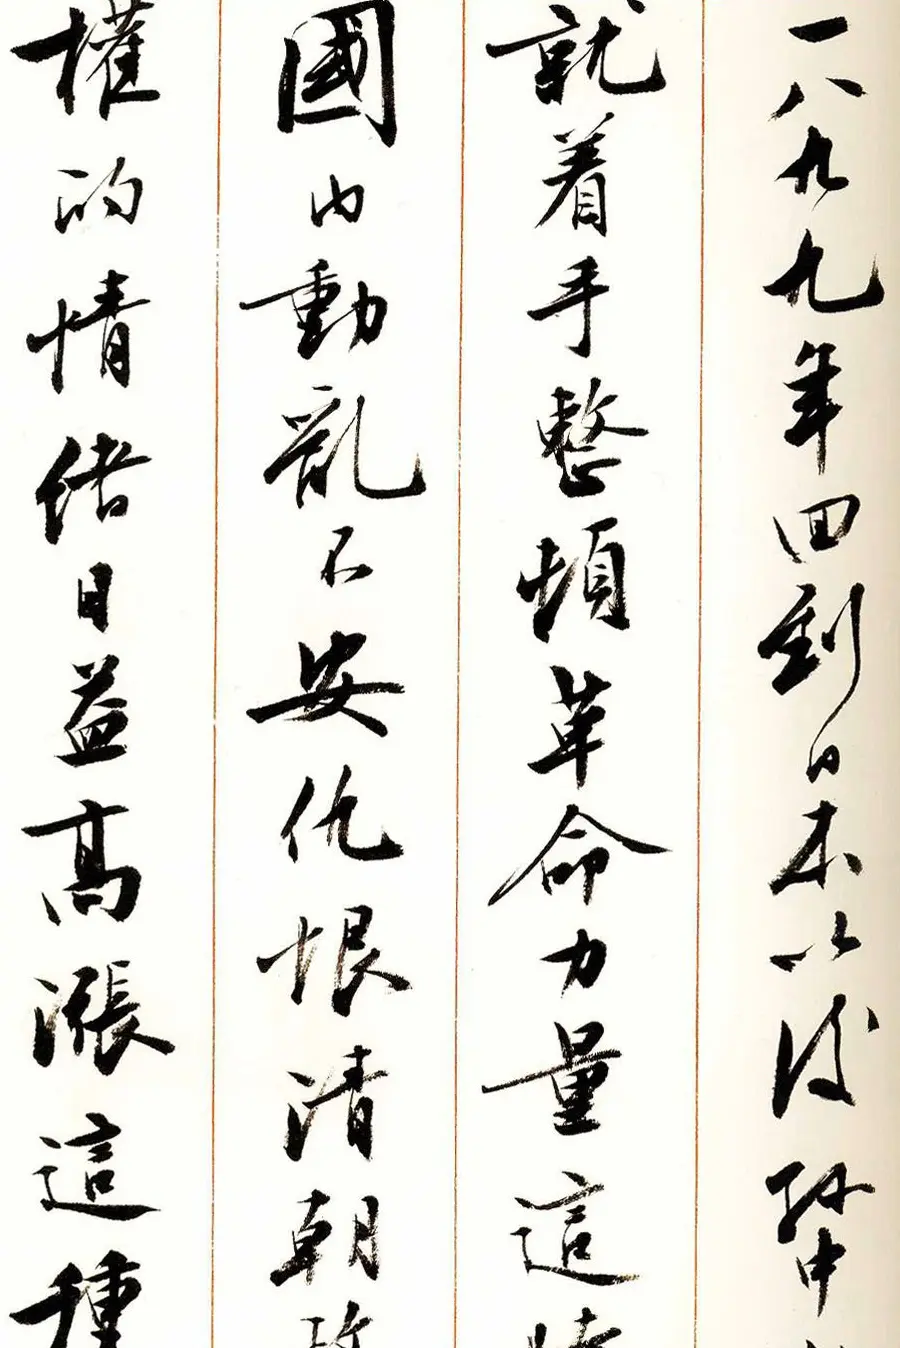 一八九九年回到日本以後孫中
就着手整頓革命力量這時
國内動亂不安仇恨清朝政
權的情緒日益高漲這種